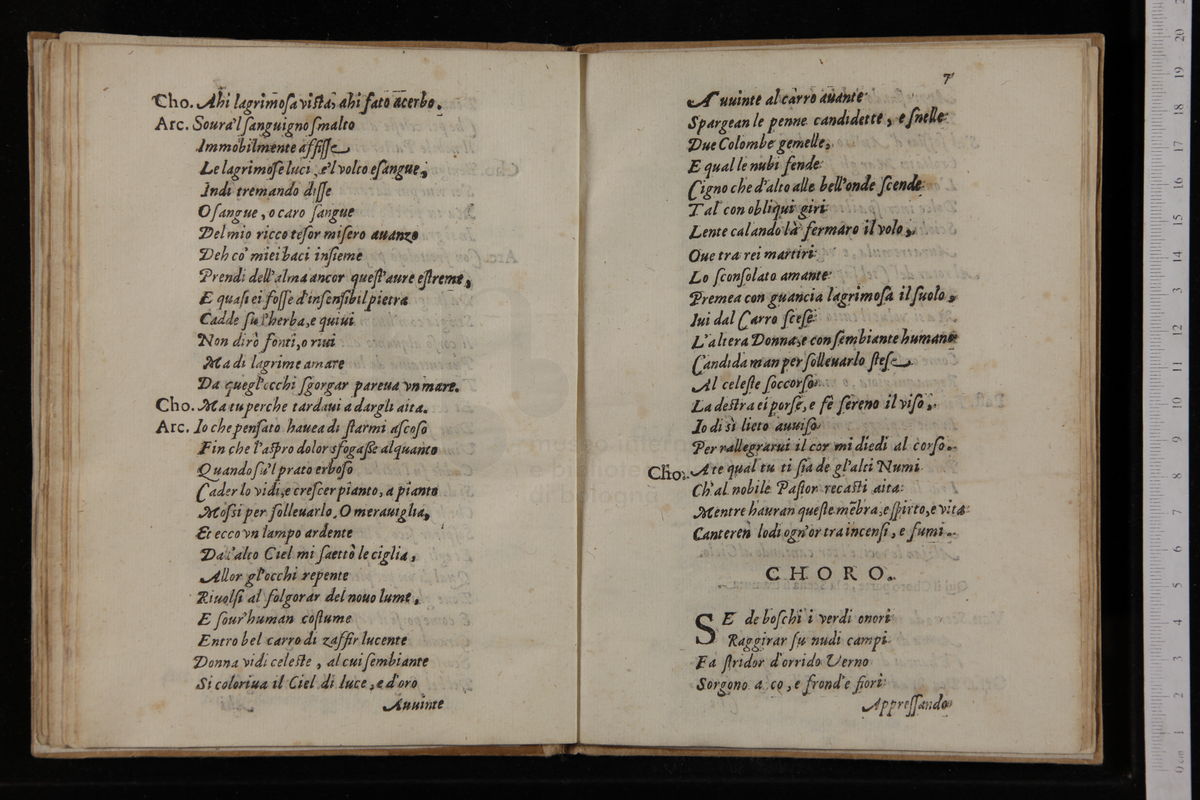 Cho. Ahi lagrimosa vista, ahi fato acerbo.
Arc. Soura'l sanguigno smalto
Immobilmente affisse
Le lagrimose luci, e'l volto esangue,
Indi tremando disse
O sangue, o caro sangue
Del mio ricco tesor misero auanzo
Deh co' miei baci insieme
Prendi dell'alma ancor quest'aure estreme,
E quasi ei fosse d'insensibil pietra
Cadde su l'herba, e quiui
Non dirò fonti, o riui
Ma di lagrime amare
Da quegl'occhi sgorgar pareua vn mare.
Cho. Ma tu perche tardaui a dargli aita.
Arc. Io che pensato hauea di starmi ascoso
Fin che l'aspro dolor sfogasse alquanto
Quando su'l prato erboso
Cader lo vidi, e crescer pianto, a pianto
Mossi per solleuarlo. O merauiglia,
Et ecco vn lampo ardente
Da l'alto Ciel mi saettò le ciglia,
Allor gl'occhi repente
Riuolsi al folgorar del nouo lume,
E sour'human costume
Entro bel carro di zaffir lucente
Donna vidi celeste, al cui sembiante
Si coloriua il Ciel di luce, e d'oro
Auuinte
7
Auuinte al carro auante
Spargean le penne candidette, e snelle
Due Colombe gemelle,
E qual le nubi fende
Cigno che d'alto alle bell'onde scende
Tal con obliqui giri
Lente calando là fermaro il volo,
Oue tra rei martiri
Lo sconsolato amante
Premea con guancia lagrimosa il suolo,
Iui dal Carro scese
L'altera Donna, e con sembiante humano
Candida man per solleuarlo stese.
Al celeste soccorso
La destra ei porse, e fè sereno il viso,
Io di sì lieto auuiso
Per rallegrarui il cor mi diedi al corso.
Cho. A te qual tu ti sia de gl'alti Numi
Ch'al nobile Pastor recasti aita
Mentre hauran queste mẽbra, e spirto, e vita
Canteren lodi ogn'or tra incensi, e fumi.
CHORO.
SE de boschi i verdi onori
Raggirar su nudi campi
Fa stridor d'orrido Verno
Sorgono a co, e frond'e fiori
Appressando
0 cm 1 2 3 4 5 6 7 8 9 10 11 12 13 14 15 16 17 18 19 20